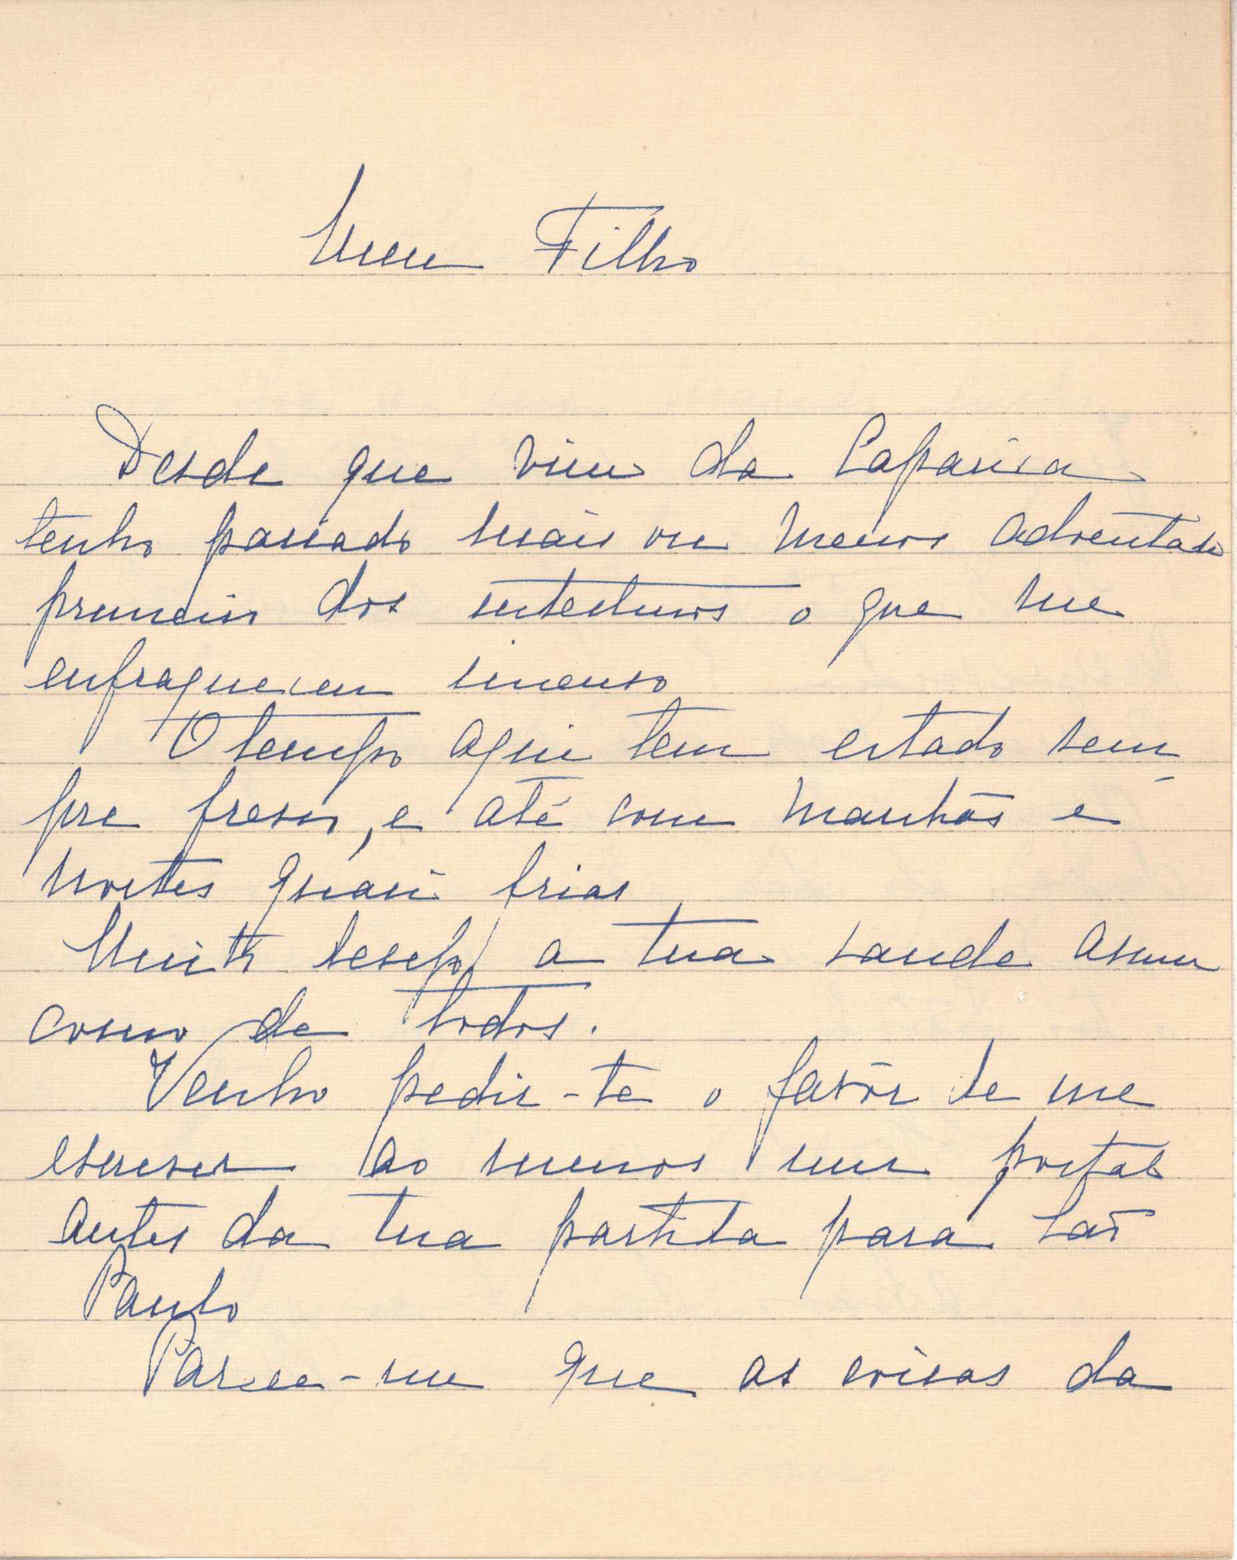 Meu Filho
Desde que vim da Caparica
tenho passado mais ou menos adoentado
primeiro dos intestinos o que me
enfraqueceu imenso
O tempo aqui tem estado sem-
pre fresco, e até com manhãs e
noites quasi frias
Muito desejo a tua saude assim
como de todos.
Venho pedir-te o favôr de me
escrever ao menos um postal
antes da tua partida para São
Paulo
Parece-me que as coisas da